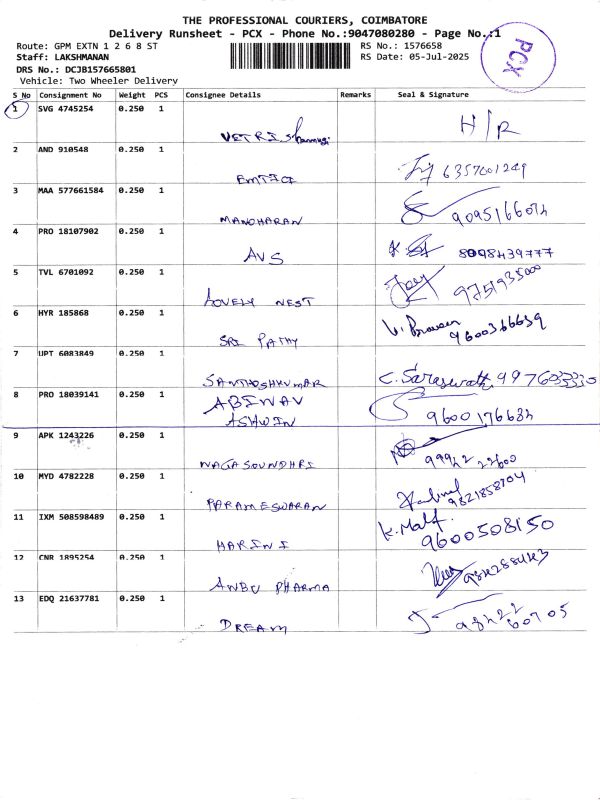 THE PROFESSIONAL COURIERS, COIMBATORE
Delivery Runsheet - PCX - Phone No.:9047080280 - Page No.:1
Route: GPM EXTN 1 2 6 8 ST
RS No.: 1576658
Staff: LAKSHMANAN
RS Date: 05-Jul-2025
DRS No.: DCJB157665801
Vehicle: Two Wheeler Delivery
PCX
S No Consignment No Weight PCS Consignee Details Remarks Seal & Signature
1 SVG 4745254 0.250 1
VETRI H/R
2 AND 910548 0.250 1
EMTICI 6357601249
3 MAA 577661584 0.250 1
MANOHARAN
4 PRO 18107902 0.250 1
AVS K. 8098439777
5 TVL 6701092 0.250 1
LOVELY NEST 9751935000
6 HYR 185868 0.250 1
SRI PATHY V. Praveen 9600366639
7 UPT 6083849 0.250 1
SANTHOSHKUMAR C. Saraswathi
8 PRO 18039141 0.250 1
ABINAV
ASHWIN
9 APK 1243226 0.250 1
NAGASOUNDHRI
10 MYD 4782228 0.250 1
PARAMESWARAN 9821858704
11 IXM 508598489 0.250 1
HARINI 9600508150
12 CNR 1895254 0.250 1
ANBU PHARMA
13 EDQ 21637781 0.250 1
DREAM